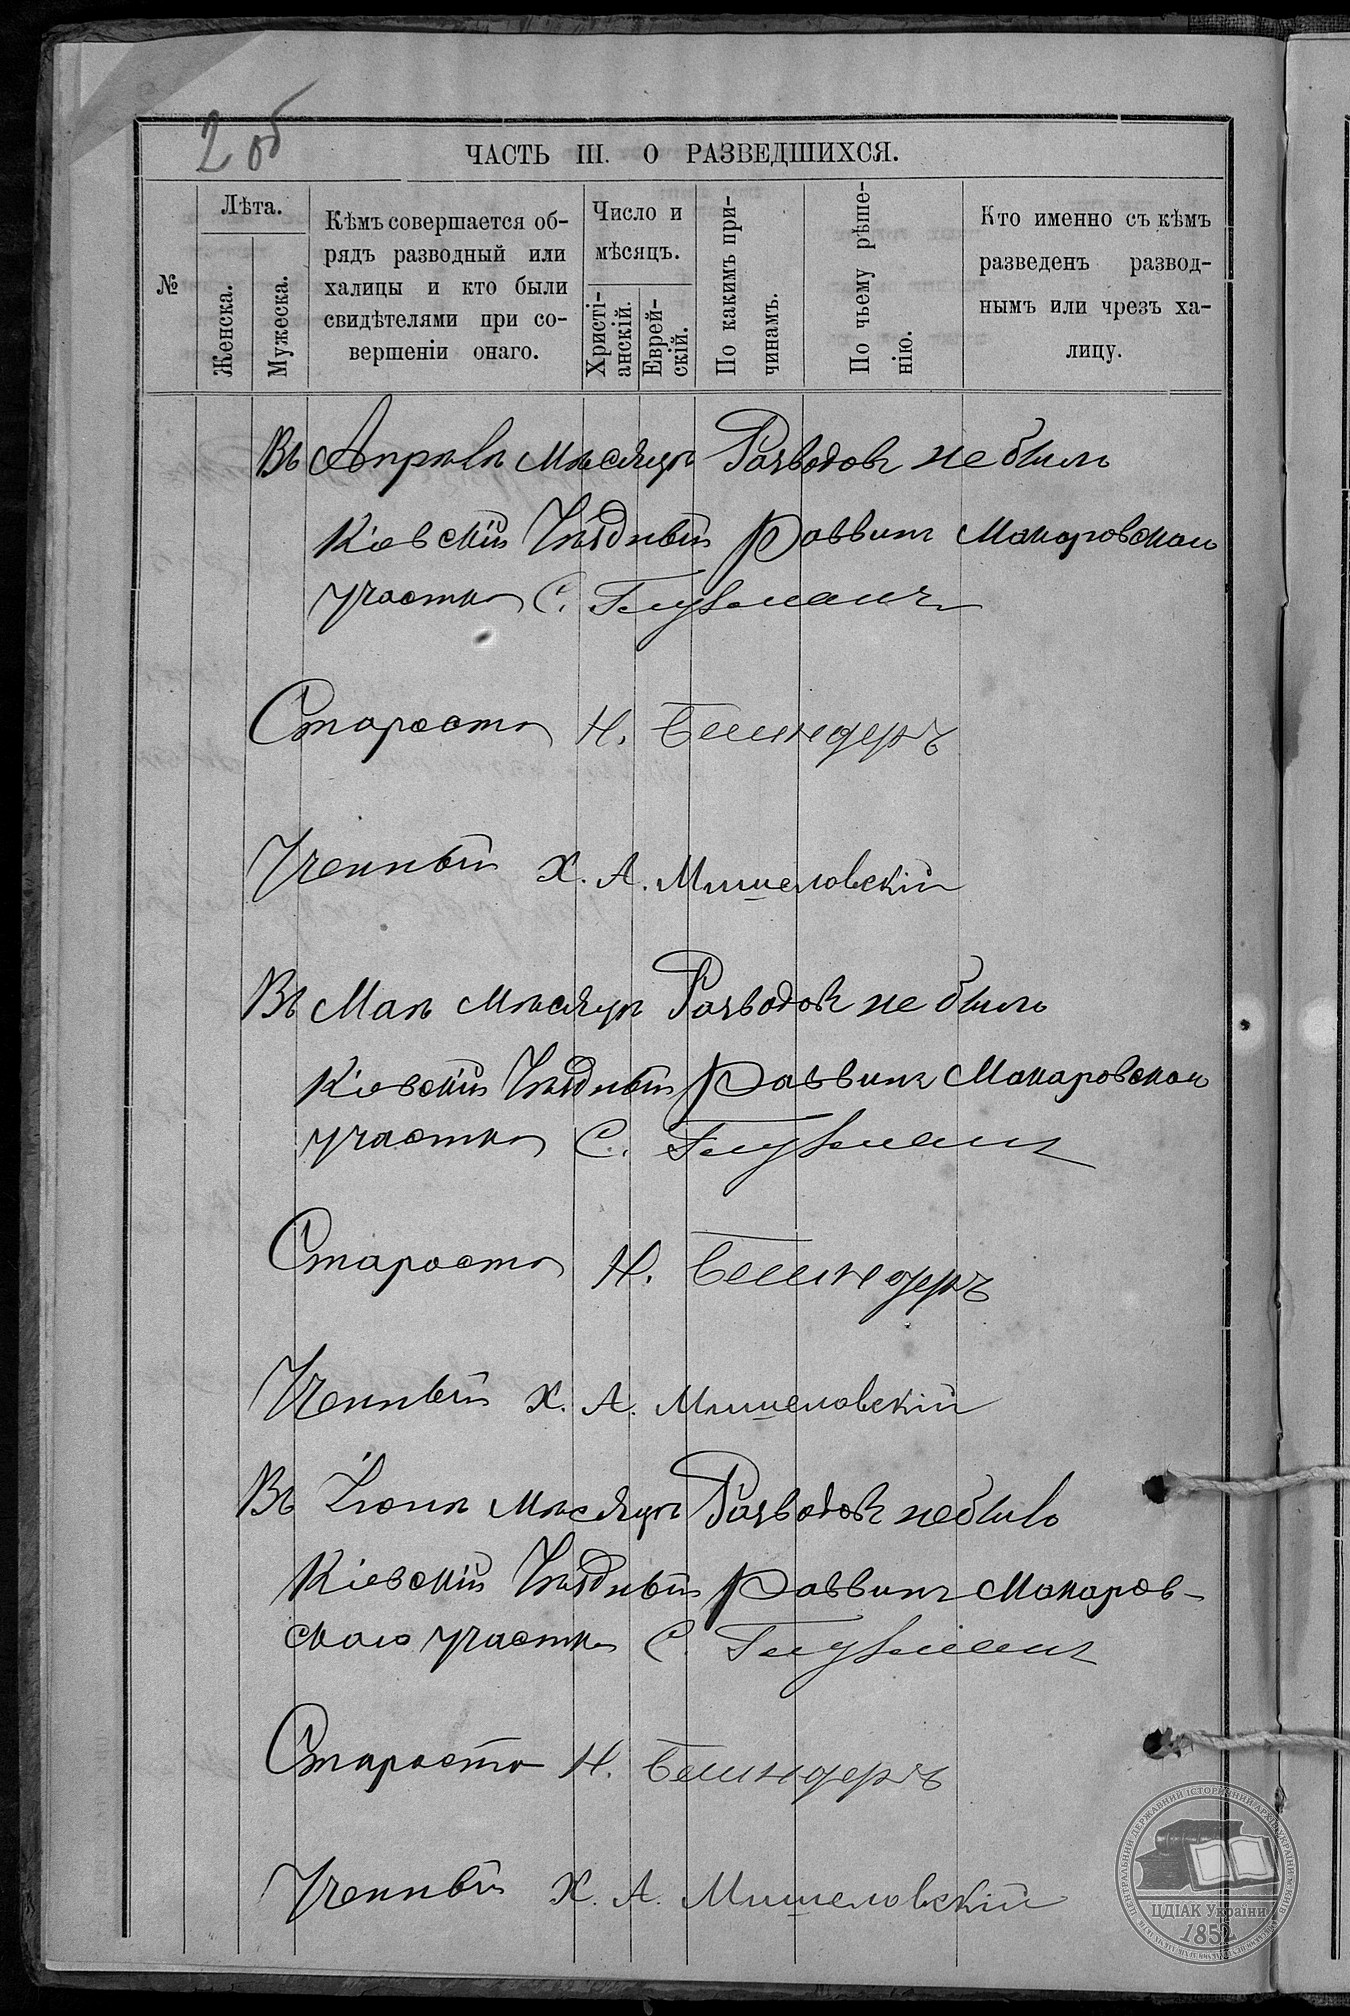 2 об
ЧАСТЬ III. О РАЗВЕДШИХСЯ.
№
Лѣта.
Женска.
Мужеска.
Кѣмъ совершается об-
рядъ разводный или
халицы и кто были
свидѣтелями при со-
вершеніи онаго.
Число и
мѣсяцъ.
Христі-
анскій.
Еврей-
скій.
По какимъ при-
чинамъ.
По чьему рѣше-
нію.
Кто именно съ кѣмъ
разведенъ развод-
нымъ или чрезъ ха-
лицу.
Въ Апрѣлѣ мѣсяцѣ Разводовъ не было
Кіевскій Уѣздный Раввинъ Макаровскаго
участка С. Глузманъ
Староста Н. Блиндеръ
Ученный Х. А. Мишеловскій
Въ Маѣ мѣсяцѣ Разводовъ не было
Кіевскій Уѣздный Раввинъ Макаровскаго
участка С. Глузманъ
Староста Н. Блиндеръ
Ученный Х. А. Мишеловскій
Въ Іюнѣ мѣсяцѣ Разводовъ не было
Кіевскій Уѣздный Раввинъ Макаров-
скаго участка С. Глузманъ
Староста Н. Блиндеръ
Ученный Х. А. Мишеловскій
ЦДІАК України
1852